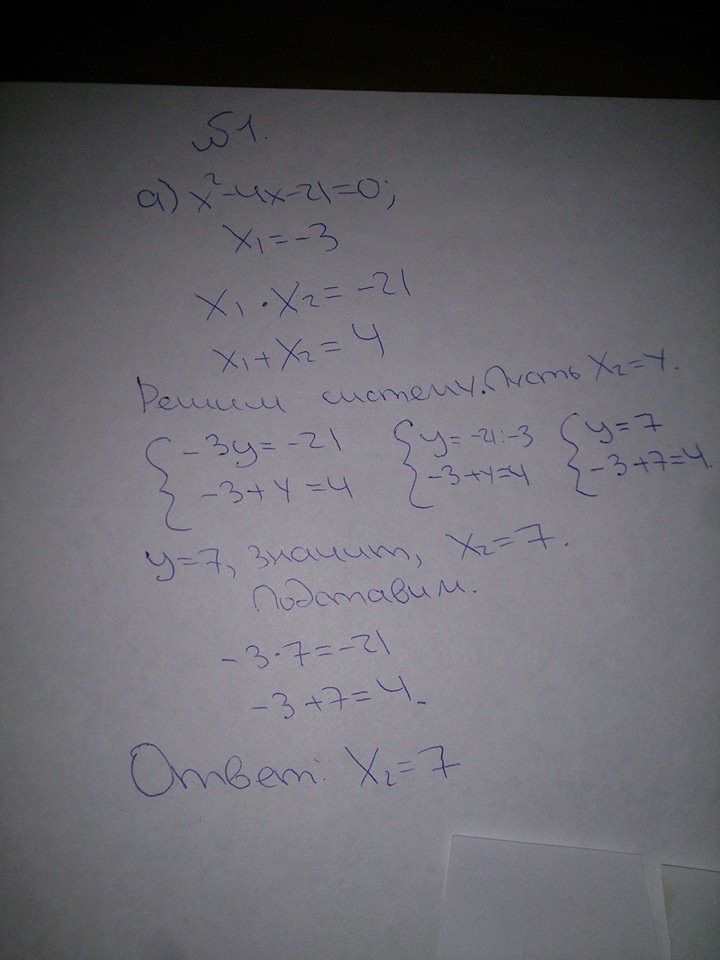 №1.
а) x²-4x-21=0;
x₁=-3
x₁·x₂=-21
x₁+x₂=4
Решим систему. Пусть x₂=y.
{-3y=-21 {y=-21:-3 {y=7
{-3+y=4 {-3+y=4 {-3+7=4.
y=7, значит, x₂=7.
Подставим.
-3·7=-21
-3+7=4.
Ответ: x₂=7